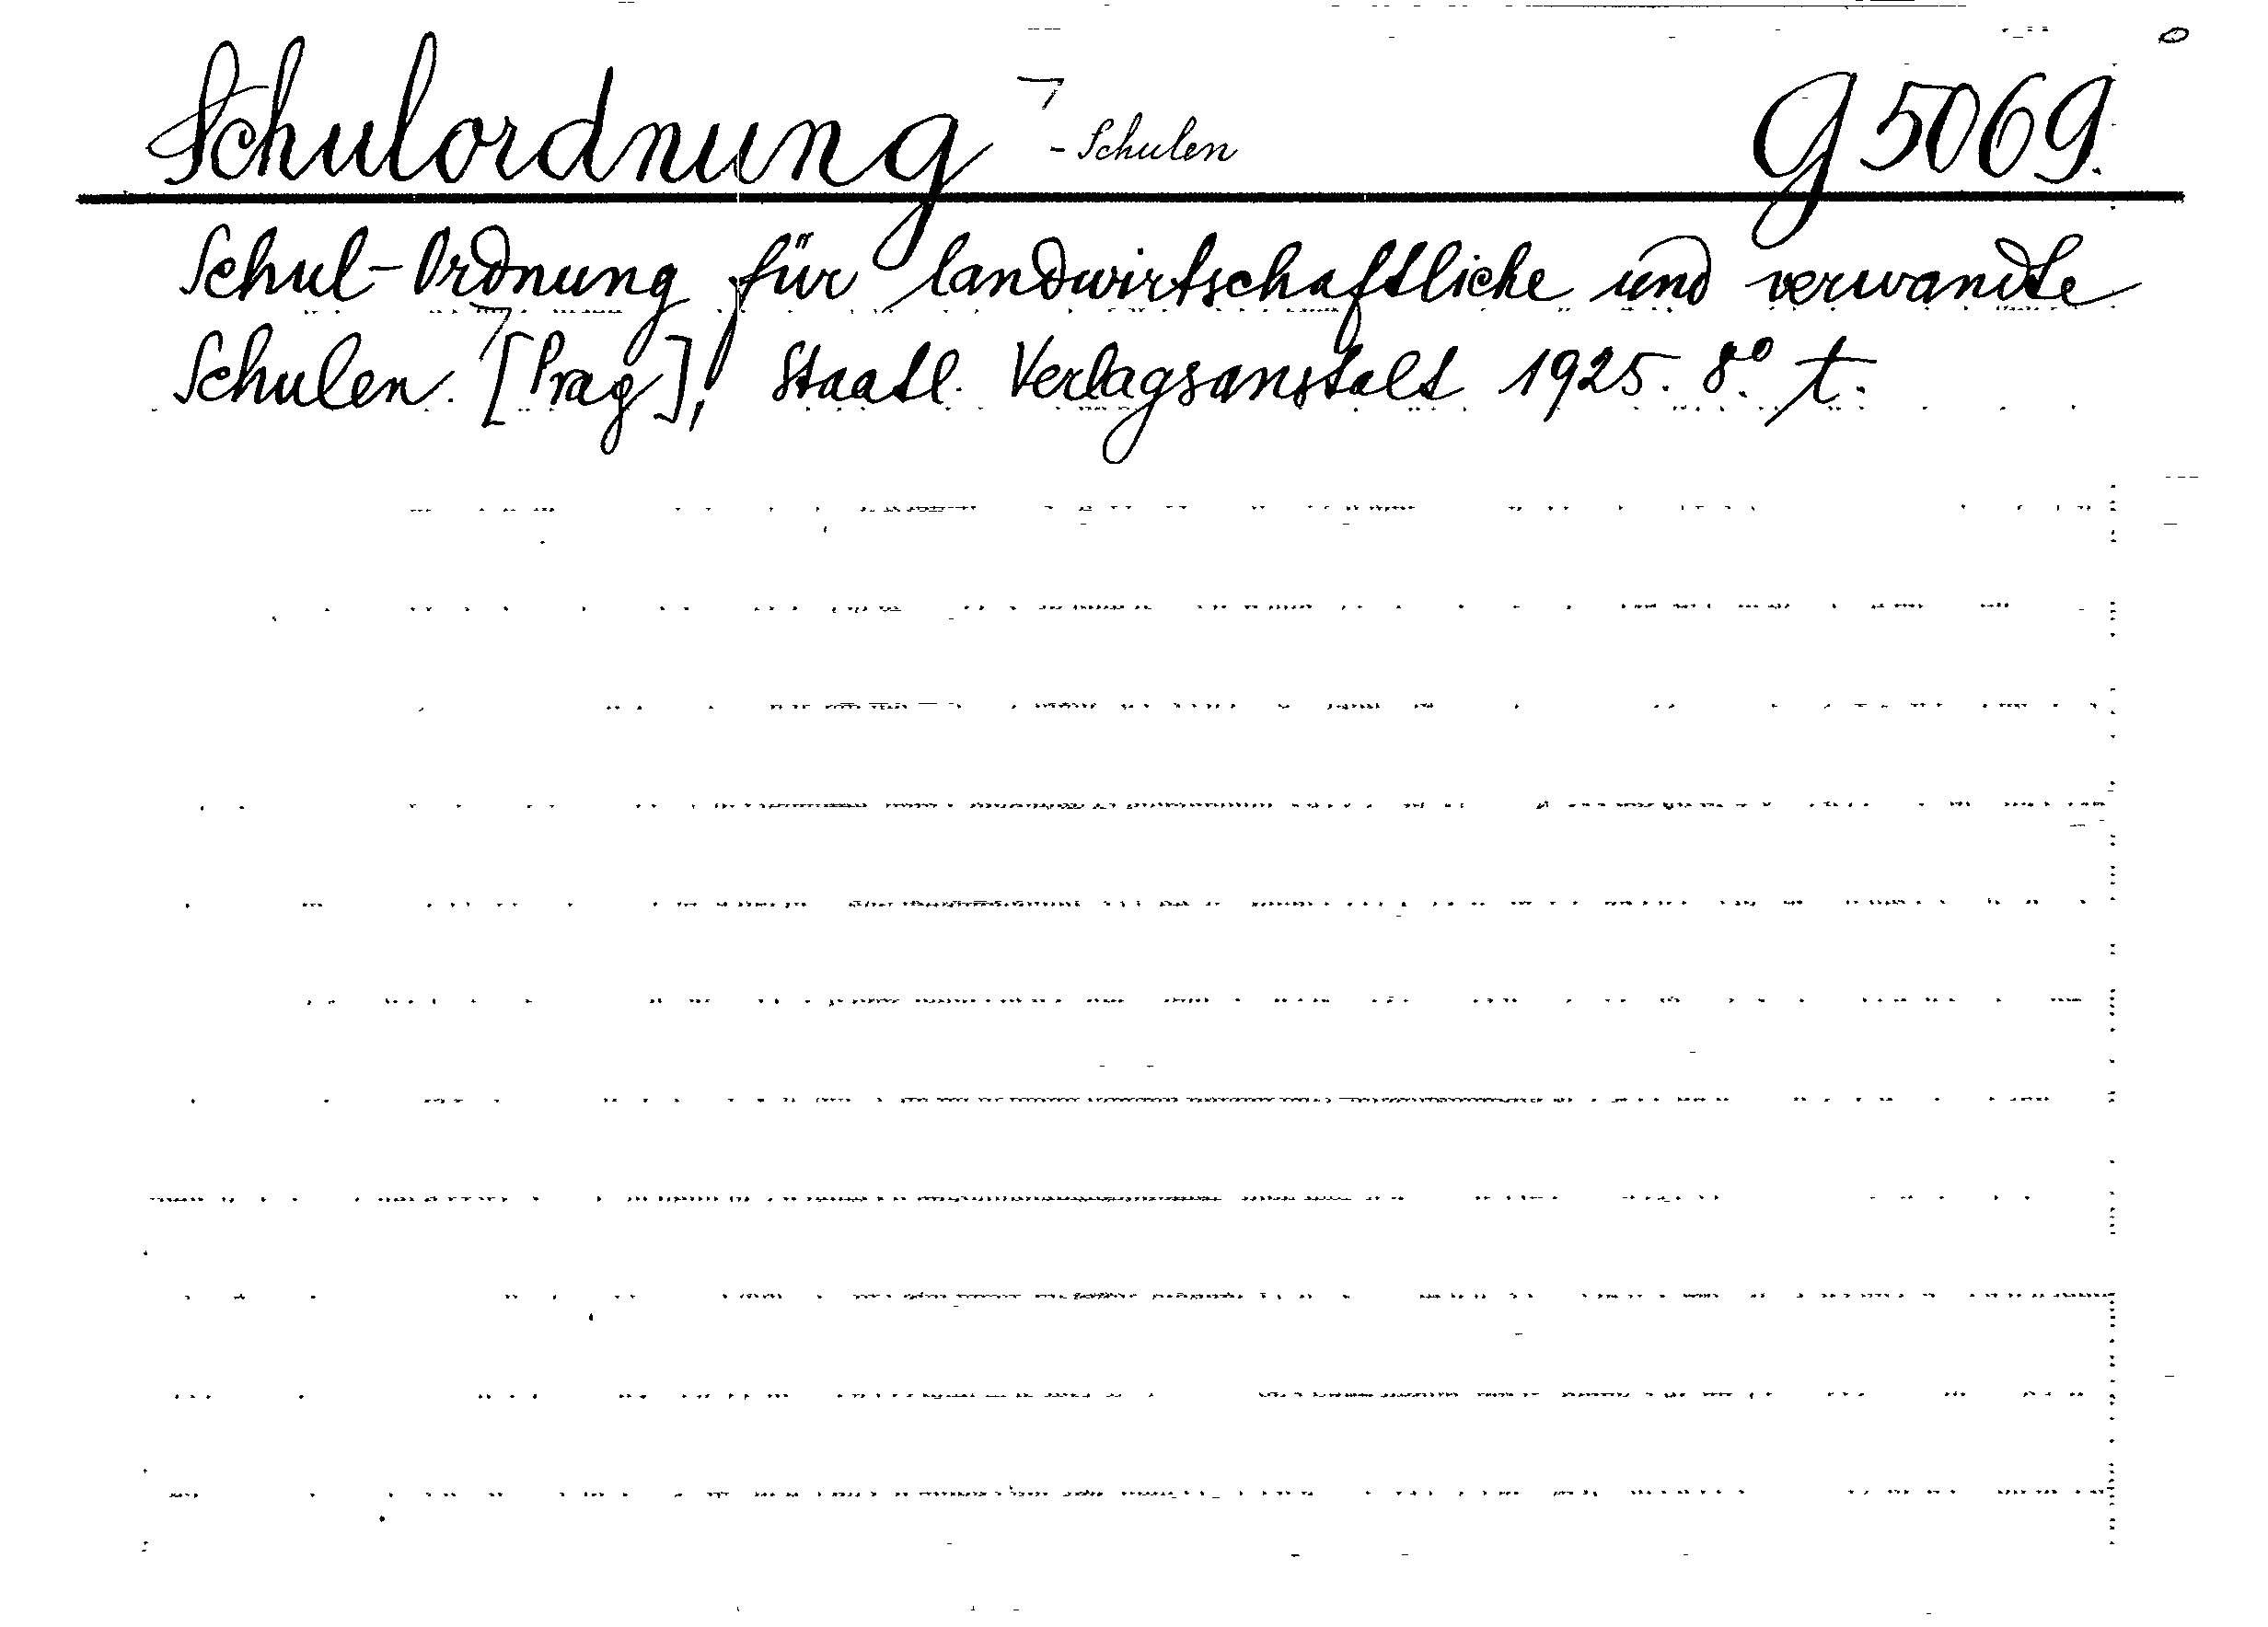 Schulordnung - Schulen G 5069.
Schul-Ordnung für landwirtschaftliche und verwandte
Schulen. [Prag], Staatl. Verlagsanstalt 1925. 8°. t.